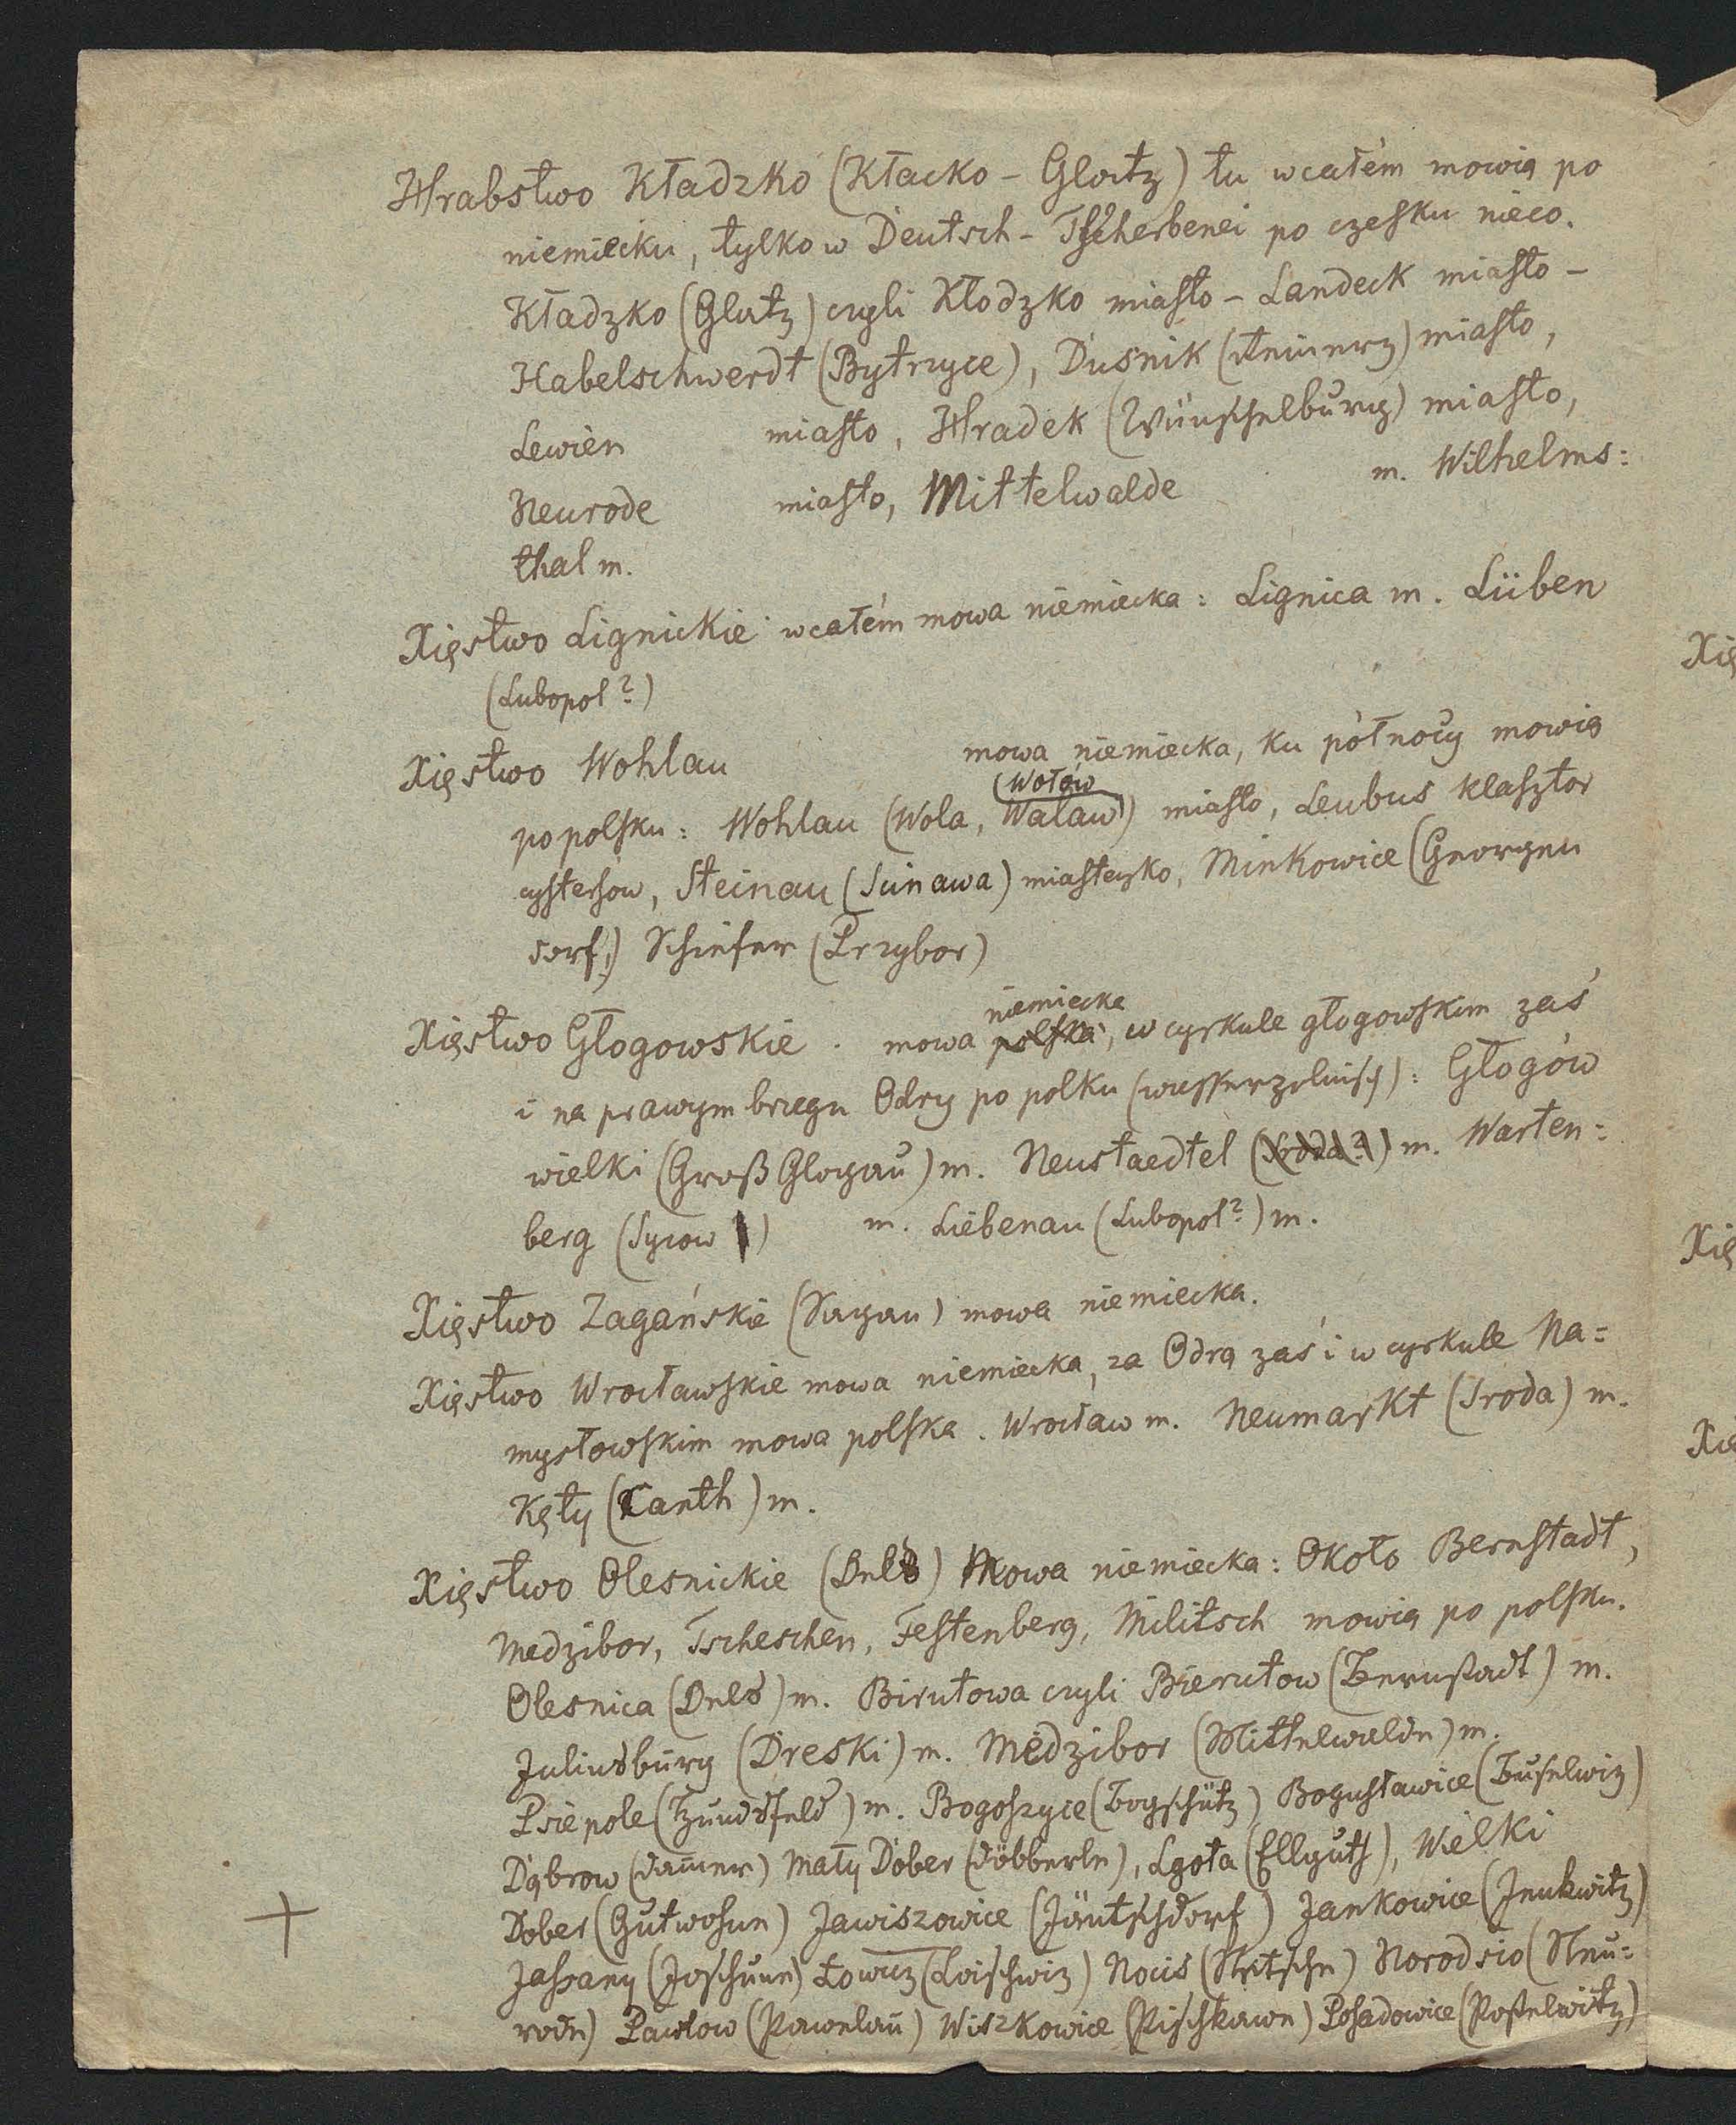 Hrabstwo Kładzko (Kłacko - Glatz) tu wcałém mowią po
niemiecku, tylko w Deutsch - Tscherbenei po czesku nieco.
Kładzko (Glatz) czyli Kłodzko miasto - Landeck miasto -
Habelschwerdt (Bytrzyce), Dusnik (Reinerz) miasto,
Lewien miasto, Hradek (Wünschelburg) miasto,
Neurode miasto, Mittelwalde m. Wilhelms:
thal m.
Xięstwo Lignickie wcałém mowa niemiecka: Lignica m. Lüben
(Lubopol?)
Xięstwo Wohlau mowa niemiecka, ku północy mowią
(Wołów
po polsku: Wohlau (Wola, Walaw) miasto, Leubus klasztor
cystersów, Steinau (Scinawa) miasteczko, Minkowice (Georgen
dorf,) Schiefer (Przybor)
niemiecka
Xięstwo Głogowskie. mowa polska, w cyrkule głogowskim zaś
i na prawym brzegu Odry po polku (wasserpolnisch): Głogów
wielki (Groß Glogau) m. Neustaedtel (Sroda?) m. Warten:
berg (Sycow) m. Liebenau (Lubopol?) m.
Xięstwo Zagańskie (Sagan) mowa niemiecka.
Xięstwo Wrocławskie mowa niemiecka, za Odrą zaś i w cyrkule Na=
mysłowskim mowa polska. Wrocław m. Neumarkt (Sroda) m.
Kęty (Canth) m.
Xięstwo Olesnickie (Oels) Mowa niemiecka: Około Bernstadt,
Medzibor, Tscheschen, Festenberg, Militsch mowią po polsku.
Olesnica (Oels) m. Birutowa czyli Bierutow (Bernstadt) m.
Juliusburg (Dreski) m. Medzibor (Mittelwalde) m.
Psie pole (Hundsfeld) m. Bogoszyce (Bogschütz) Bogusławice (Buselwiz)
Dąbrow (Dam̄er) Mały Dober (Döbberle), Lgota (Ellguth), Wielki
Dober (Gutwohne) Jawiszowice (Jäntschdorf) Jankowice (Jenkwitz)
Jassany (Joschune) Łowicz (Loischwiz) Nocis (Netsche) Norodsio (Neu=
rode) Pawłow (Pawelau) Wiszkowice (Pischkawe) Posadowice (Postelwitz)
Xię
Xię
Xię